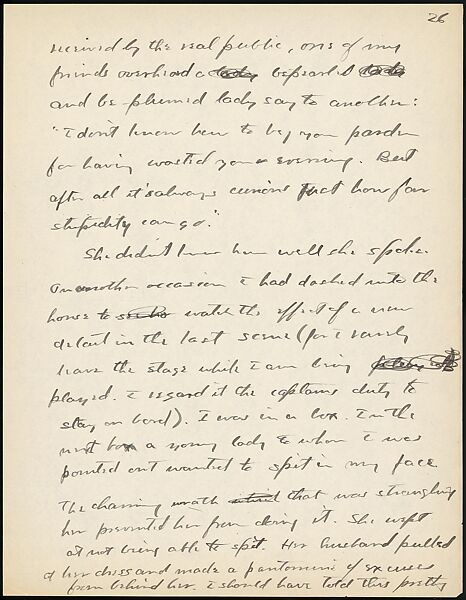 26
received by the real public, one of my
friends overheard a lady bepearled
and be-plumed lady say to another:
"I don't know how to beg your pardon
for having wasted your evening. But
after all it's always curious just how far
stupidity can go."
She didn't know how well she spoke.
On another occasion I had dashed into the
house to watch the effect of a new
detail in the last scene (for I rarely
leave the stage while I am being
played. I regard it the captains duty to
stay on bord). I was in a box. In the
next box a young lady to whom I was
pointed out wanted to spit in my face.
The charming wrath that was strangling
her prevented her from doing it. She wept
at not being able to spit. Her husband pulled
at her dress and made a pantomime of excuses
from behind her. I should have told this pretty